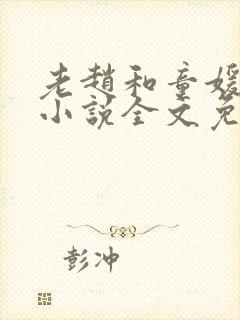 老趙和童媛
小說全文免
彭冲